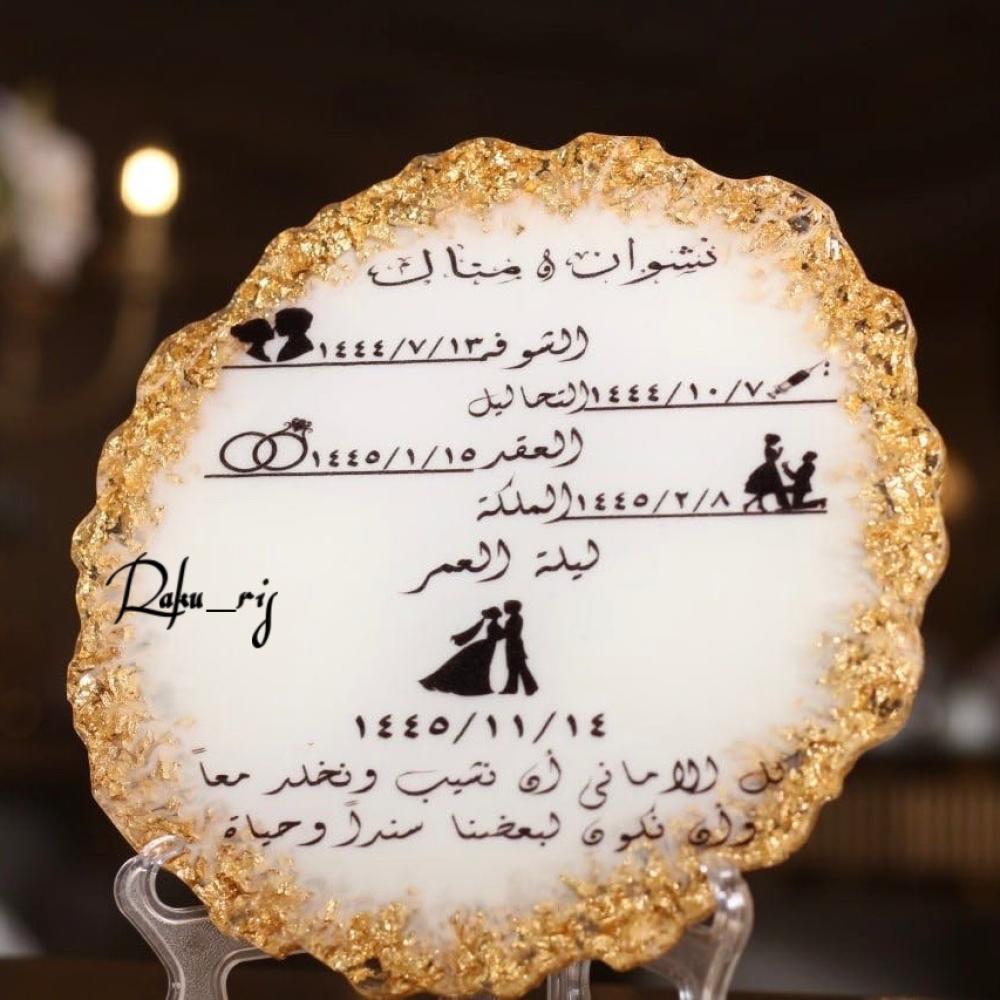 نشوان و منال
الشوفه ١٤٤٤/٧/١٣
التحاليل ١٤٤٤/١٠/٧
العقد ١٤٤٥/١/١٥
الملكة ١٤٤٥/٢/٨
ليلة العمر
Raku_rij
١٤٤٥/١١/١٤
كل الاماني أن نشيب ونخلد معاً
وأن نكون لبعضنا سنداً وحياة